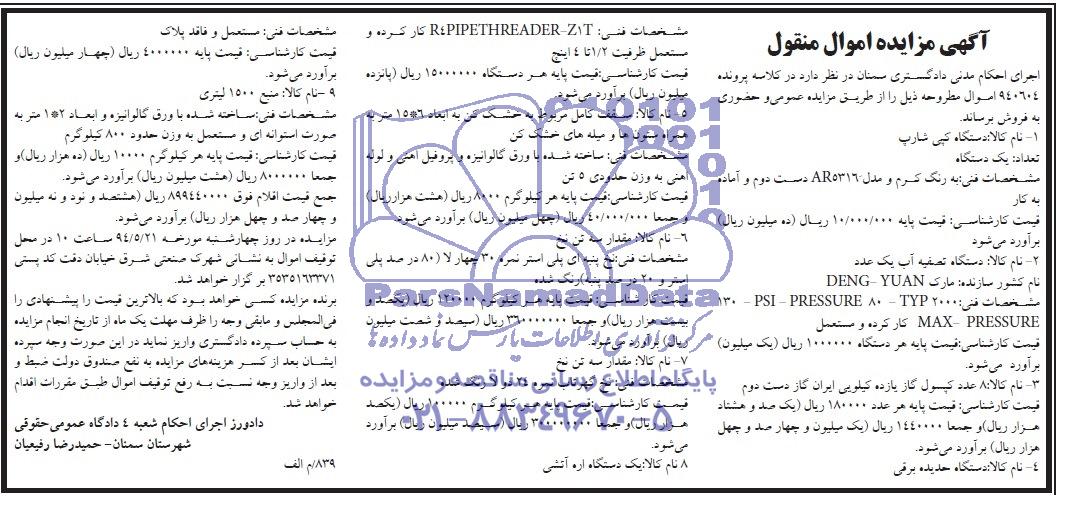 آگهی مزایده اموال منقول
اجرای احکام مدنی دادگستری سمنان در نظر دارد در کلاسه پرونده
۹۴۰۶۰۴ اموال مطروحه ذیل را از طریق مزایده عمومی و حضوری
به فروش برساند.
۱- نام کالا:دستگاه کپی شارپ
تعداد: یک دستگاه
مشخصات فنی:به رنگ کرم و مدل AR۵۳۱۶ دست دوم و آماده
به کار
قیمت کارشناسی: قیمت پایه ۱۰/۰۰۰/۰۰۰ ریال (ده میلیون ریال)
برآورد می‌شود
۲- نام کالا: دستگاه تصفیه آب یک عدد
نام کشور سازنده: مارک DENG- YUAN
مشخصات فنی:۲۰۰۰ PSI – PRESSURE ۸۰ – TYP – ۱۳۰
MAX- PRESSURE کار کرده و مستعمل
قیمت کارشناسی:قیمت پایه هر دستگاه ۱۰۰۰۰۰۰ ریال (یک میلیون)
برآورد می‌شود.
۳- نام کالا:۸ عدد کپسول گاز یازده کیلویی ایران گاز دست دوم
قیمت کارشناسی: قیمت پایه هر عدد ۱۸۰۰۰۰ ریال (یک صد و هشتاد
هزار ریال)و جمعا ۱۴۴۰۰۰۰ ریال (یک میلیون و چهار صد و چهل
هزار ریال) برآورد می‌شود.
۴- نام کالا:دستگاه حدیده برقی
مشخصات فنی: R۴PIPETHREADER-Z۱T کار کرده و
مستعمل ظرفیت ۱/۲تا ۴ اینچ
قیمت کارشناسی:قیمت پایه هر دستگاه ۱۵۰۰۰۰۰۰ ریال (پانزده
میلیون ریال) برآورد می‌شود.
۵- نام کالا: سقف کامل مربوط به خشک کن به ابعاد ۶*۱۵ متر به
همراه ستون ها و میله های خشک کن
مشخصات فنی: ساخته شده با ورق گالوانیزه و پروفیل آهنی و لوله
آهنی به وزن حدودی ۵ تن
قیمت کارشناسی:قیمت پایه هر کیلوگرم ۸۰۰۰ ریال (هشت هزارریال)
و جمعا ۴۰/۰۰۰/۰۰۰ ریال (چهل میلیون ریال) برآورد می‌شود.
۶- نام کالا: مقدار سه تن نخ
مشخصات فنی:نخ پنبه ای پلی استر نمره ۳۰ چهار لا (۸۰ در صد پلی
استر و ۲۰ در صد پنبه)رنگ شده
قیمت کارشناسی: قیمت پایه هر کیلوگرم ۱۲۰۰۰۰ ریال (یکصد و
بیست هزار ریال)و جمعا ۳۶۰۰۰۰۰۰۰ ریال (سیصد و شصت میلیون
ریال) برآورد می شود.
۷- نام کالا: مقدار سه تن نخ
مشخصات فنی: نخ نمره ۲۴ دو لا رنگ شده
قیمت کارشناسی: قیمت پایه هر کیلوگرم ۱۰۰۰۰۰ ریال (یکصد
هزار ریال)و جمعا ۳۰۰۰۰۰۰۰۰ ریال (سیصد میلیون ریال) برآورد
می‌شود.
۸ نام کالا:یک دستگاه اره آتشی
مشخصات فنی: مستعمل و فاقد پلاک
قیمت کارشناسی: قیمت پایه ۴۰۰۰۰۰۰ ریال (چهار میلیون ریال)
برآورد می‌شود.
۹ –نام کالا: منبع ۱۵۰۰ لیتری
مشخصات فنی:ساخته شده با ورق گالوانیزه و ابعاد ۲*۱ متر به
صورت استوانه ای و مستعمل به وزن حدود ۸۰۰ کیلوگرم
قیمت کارشناسی: قیمت پایه هر کیلوگرم ۱۰۰۰۰ ریال (ده هزار ریال)و
جمعا ۸۰۰۰۰۰۰ ریال (هشت میلیون ریال) برآورد می‌شود.
جمع قیمت اقلام فوق ۸۹۹۴۴۰۰۰۰ ریال (هشتصد و نود و نه میلیون
و چهار صد و چهل هزار ریال) برآورد می‌شود.
مزایده در روز چهارشنبه مورخه ۹۴/۵/۲۱ ساعت ۱۰ در محل
توقیف اموال به نشانی شهرک صنعتی شرق خیابان دقت کد پستی
۳۵۳۵۱۶۳۳۷۱ بر گزار خواهد شد.
برنده مزایده کسی خواهد بود که بالاترین قیمت را پیشنهادی را
فی‌المجلس و مابقی وجه را ظرف مهلت یک ماه از تاریخ انجام مزایده
به حساب سپرده دادگستری واریز نماید در این صورت وجه سپرده
ایشان بعد از کسر هزینه‌های مزایده به نفع صندوق دولت ضبط و
بعد از واریز وجه نسبت به رفع توقیف اموال طبق مقررات اقدام
خواهد شد.
دادورز اجرای احکام شعبه ۴ دادگاه عمومی‌حقوقی
شهرستان سمنان- حمیدرضا رفیعیان
۸۳۹/م الف
ParsNamadData
مرکز فرآوری اطلاعات پارس نماد داده ها
پایگاه اطلاع رسانی مناقصه و مزایده
۰۲۱-۸۸۳۴۹۶۷۰-۵